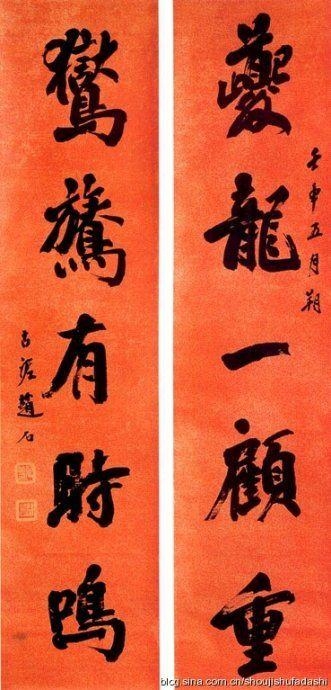 夔龍一顧重
壬申五月朔
鸑鷟有時鳴
古泥趙石
blog.sina.com.cn/shoujishufadashi